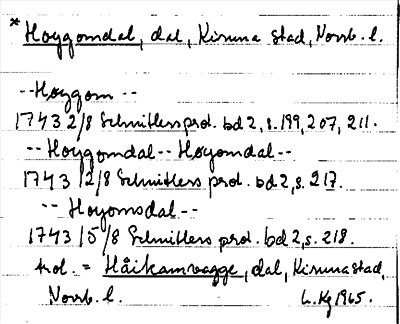 * Høygomdal, dal, Kiruna stad, Norrb. l.
-- Høygom --
1743 2/8 Schnitlers prot. bd 2, s. 199, 207, 211.
-- Høygomdal -- Høyomdal --
1743 12/8 Schnitlers prot. bd 2, s. 217.
-- Høyomsdal --
1743 15/8 Schnitlers prot. bd 2, s. 218.
= Håikamvagge, dal, Kiruna stad,
Norrb. l. L. Kg 1965.